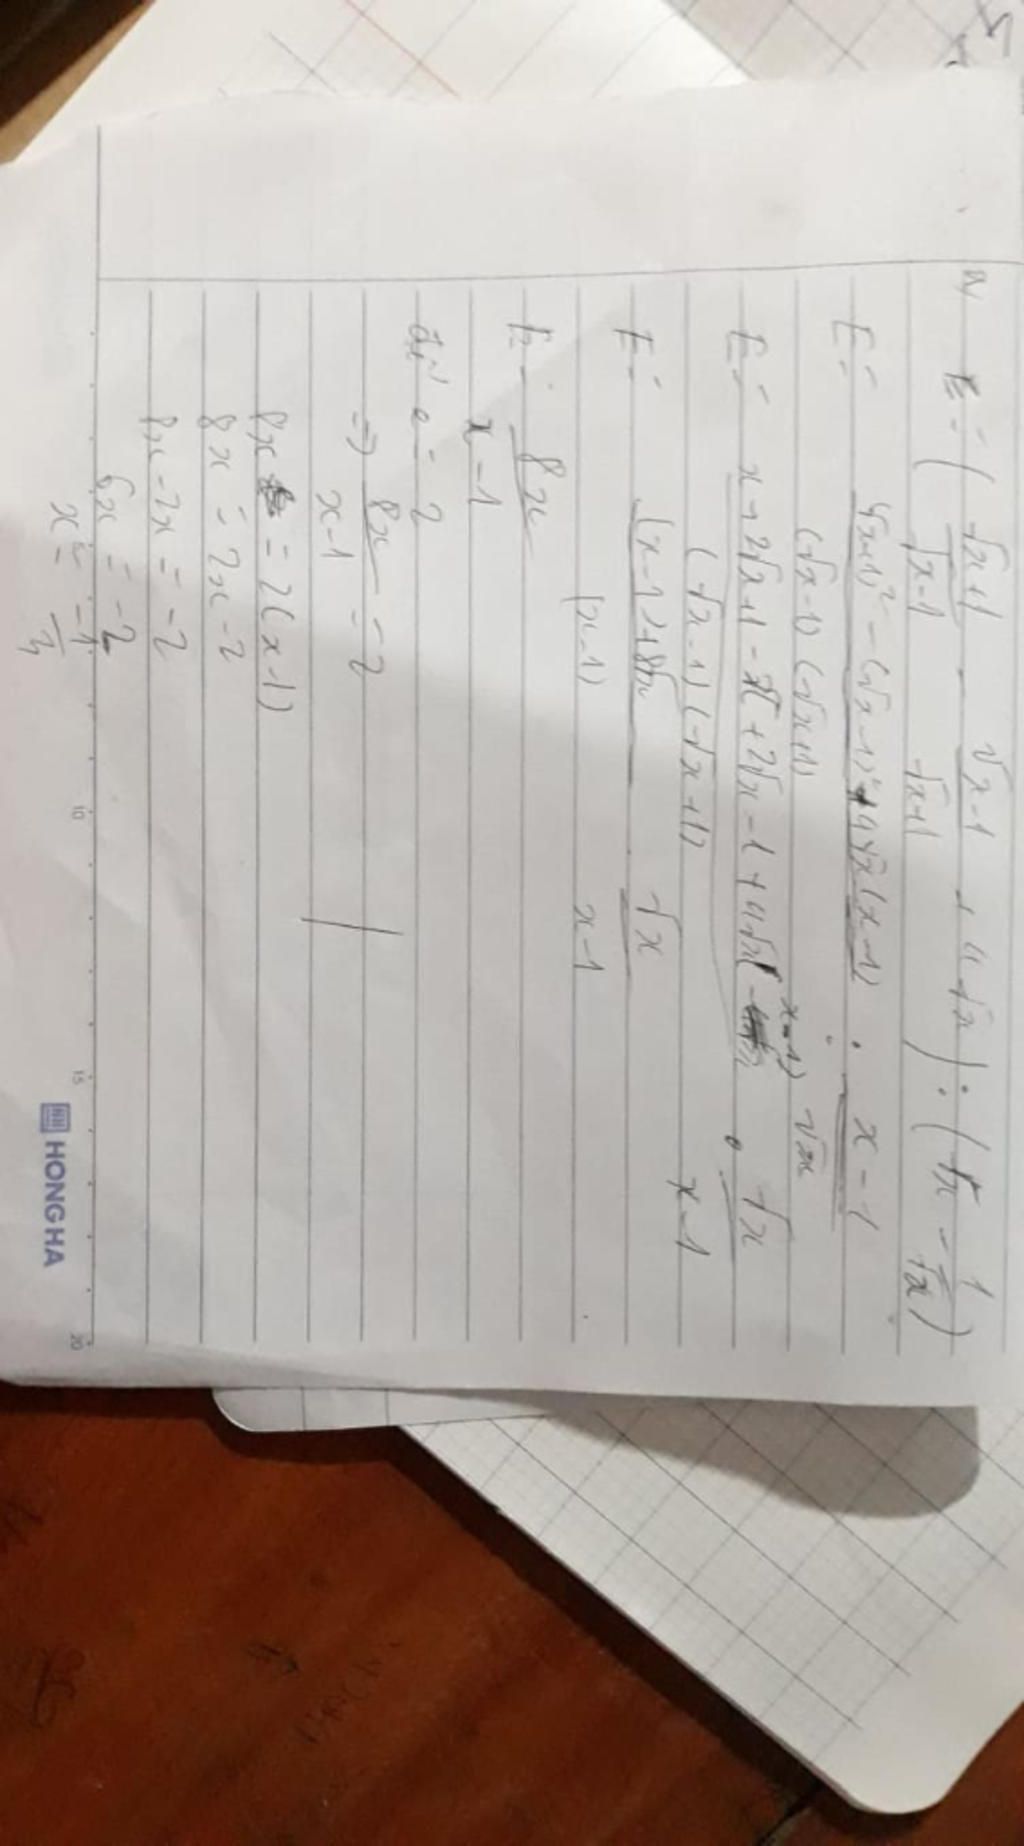 E = ( √x+1 / √x-1 - √x-1 / √x+1 + 4√x ) : ( √x - 1 / √x )
E = (√x+1)² - (√x-1)² + 4√x(x-1) / (√x-1)(√x+1) : x-1 / √x
E = x+2√x+1-x+2√x-1+4√x(x-1) / (√x-1)(√x+1) . √x / x-1
E = (x-1)+8√x / (x-1) √x / x-1
E = 8x / x-1
= 2
=> 8x / x-1 = 2
8x = 2(x-1)
8x = 2x-2
8x-2x = -2
6x = -2
10
15
20
HONG HA